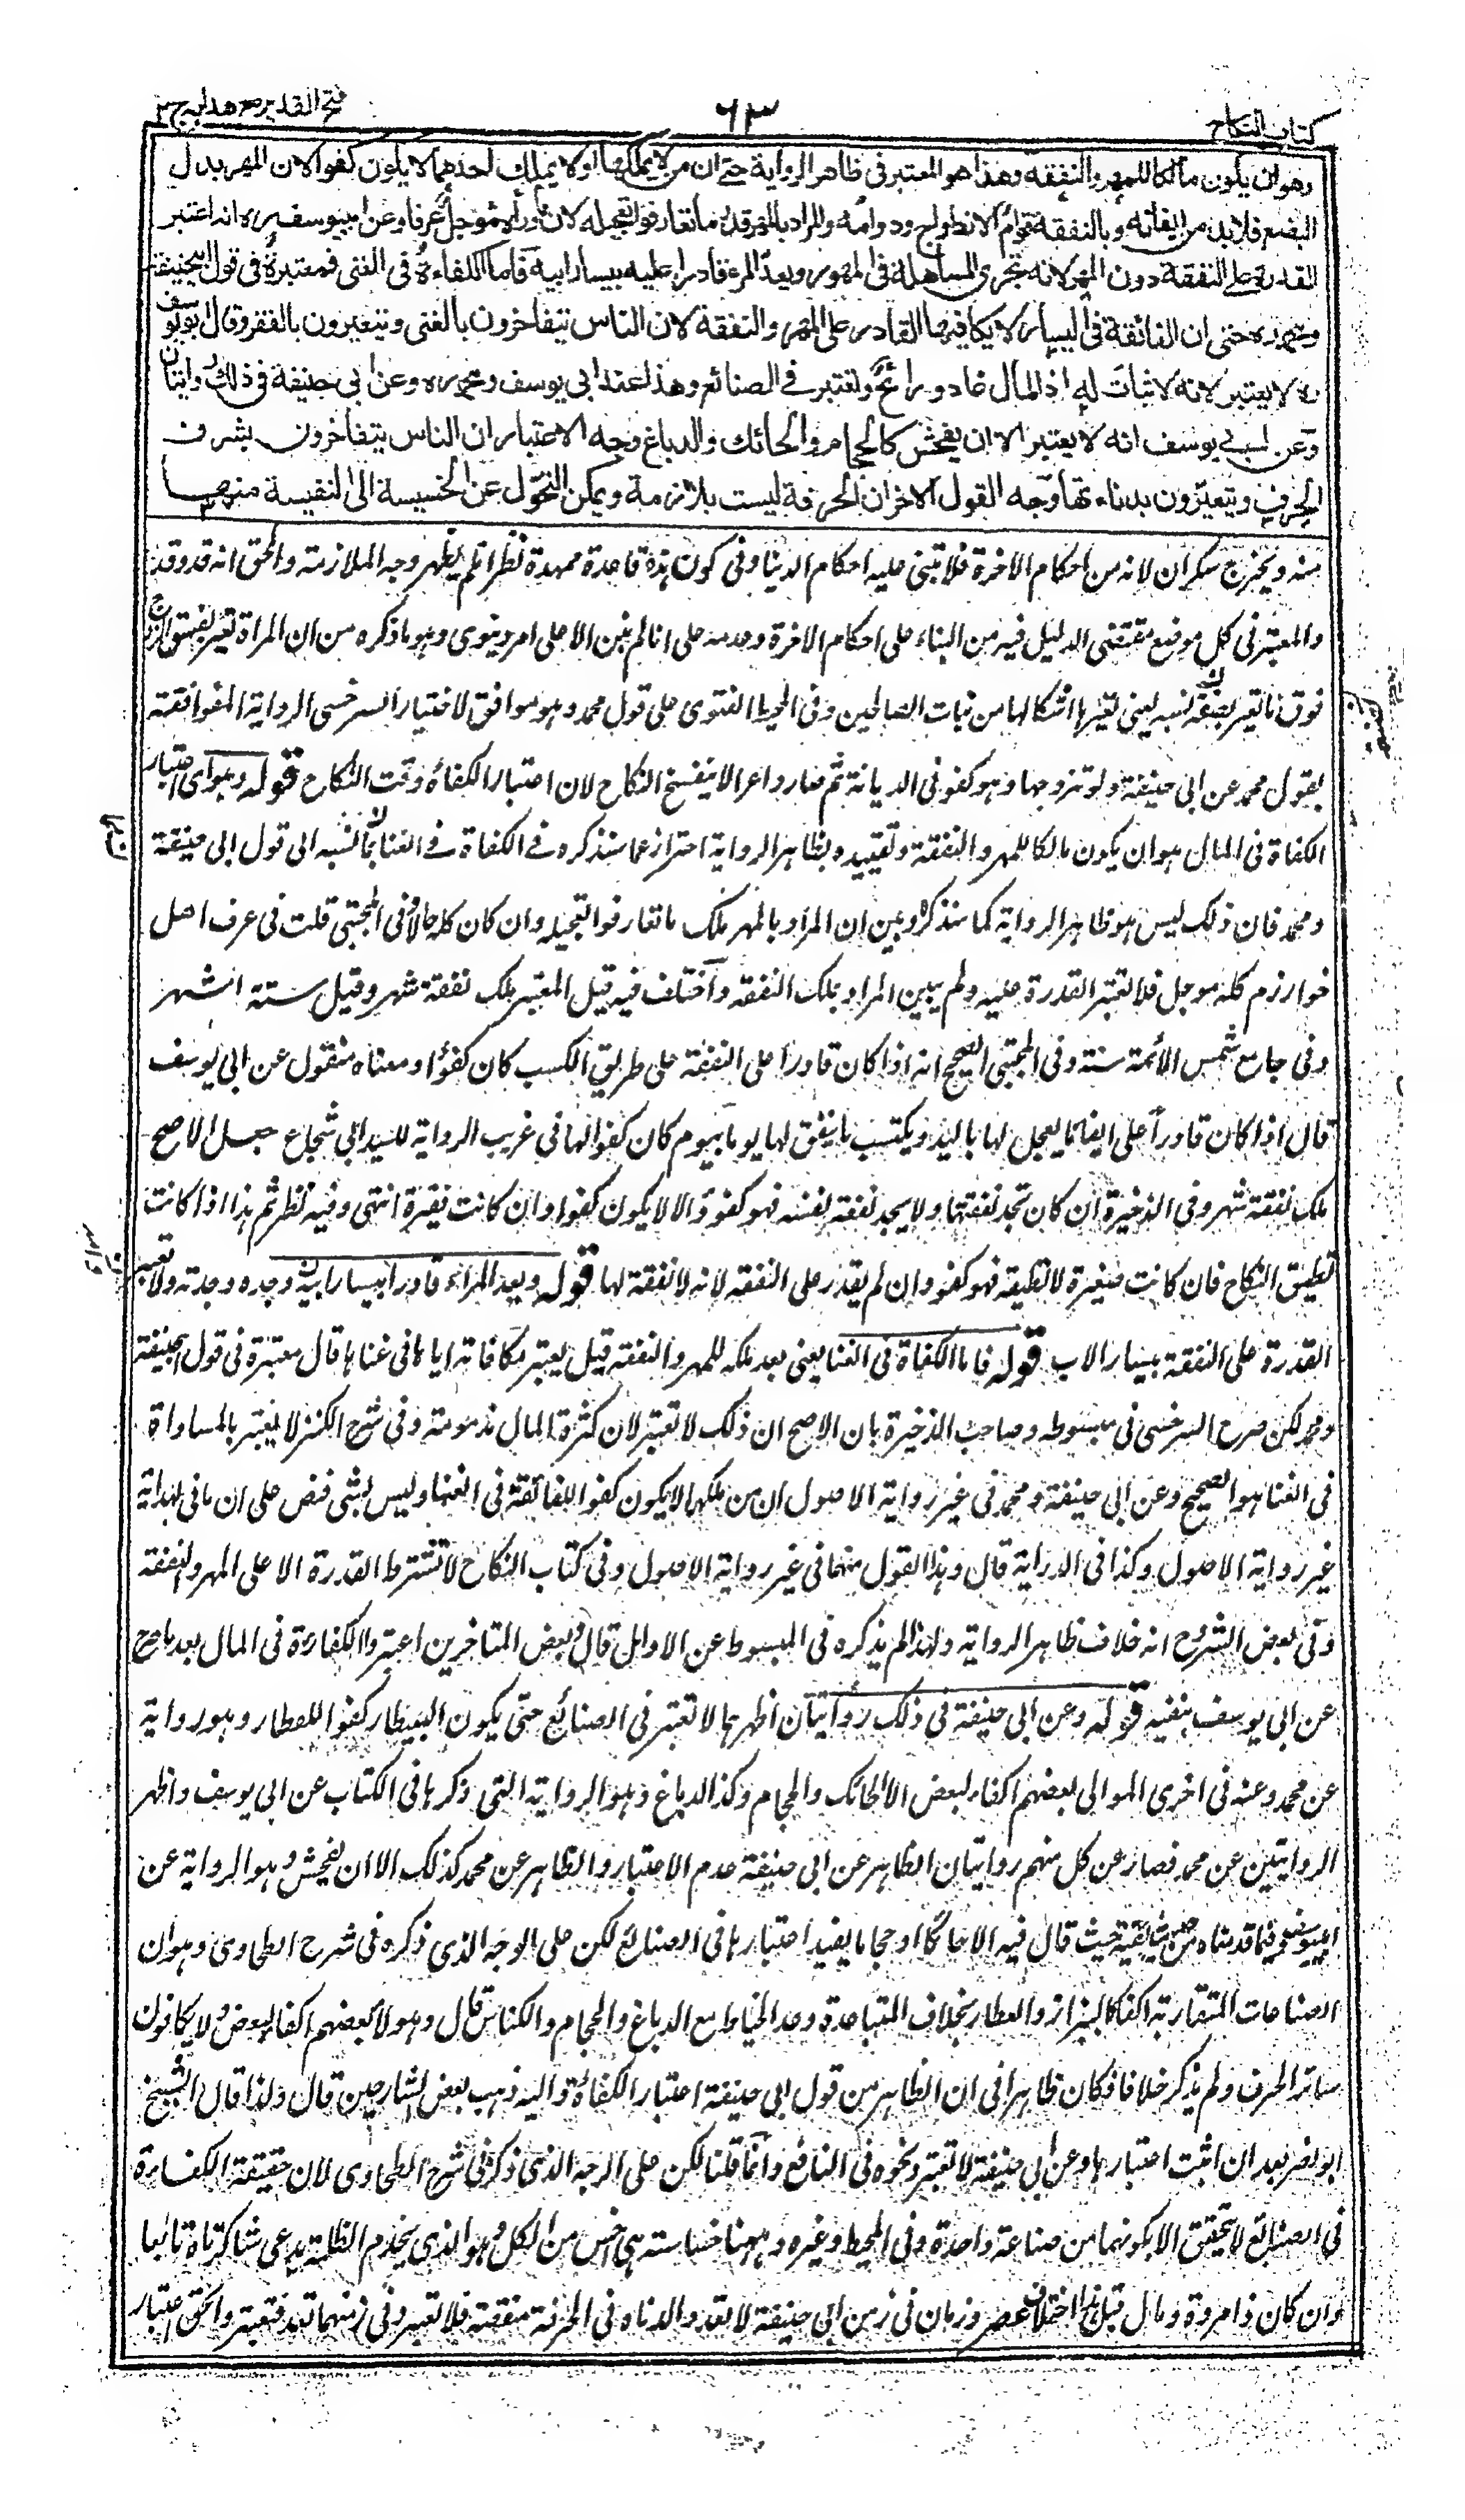 كتاب النكاح
٦٣
فتح القدير مع هدايه ج ٢
وهو ان يكون مالكا للمهر والنفقة وهذا هو المعتبر فى ظاهر الرواية حتى ان من لا يملكهما او لا يملك احدهما لا يكون كفوا لان المهر بدل
البضع فلابد من ايفائه وبالنفقة قوام الازدواج ودوامه والمراد بالمهر قدر ما تعارفوا تعجيله لان ما وراءه مؤجل عرفا وعن ابى يوسف ره انه اعتبر
القدرة على النفقة دون المهر لانه تجرى المساهلة فى المهور ويعد المرء قادرا عليه بيسار ابيه فاما الكفاءة فى الغنى فمعتبرة فى قول ابى حنيفة
ومحمد ره حتى ان الفائقة فى اليسار لا يكافيها القادر على المهر والنفقة لان الناس يتفاخرون بالغنى ويتعيرون بالفقر وقال ابو يوسف
ره لا يعتبر لانه لا ثبات له اذ المال غاد ورائح وتعتبر فى الصنائع وهذا عند ابى يوسف ومحمد ره وعن ابى حنيفة فى ذلك روايتان
وعن ابى يوسف انه لا يعتبر الا ان يفحش كالحجام والحائك والدباغ وجه الاعتبار ان الناس يتفاخرون بشرف
الحرف ويتعيرون بدناءتها وجه القول الاخر ان الحرفة ليست بلازمة ويمكن التحول عن الخسيسة الى النفيسة منها
منه ويخرج سكران لانه من احكام الاخرة فلا تبنى عليه احكام الدنيا وفى كون هذه قاعدة ممهدة نظر اذ لم يظهر وجه الملازمة والحق انه قد وقد
والمعتبر فى كل موضع مقتضى الدليل فيه من البناء على احكام الاخرة وعدمه على انا لم نبن الا على امر دنيوى وهو ما ذكره من ان المراة تعير بفسق الزوج
فوق ما تعير بضعة نسبه يعنى تعيرها اشكالها من بنات الصالحين وفى المحيط الفتوى على قول محمد وهو موافق لاختيار السرخسى الرواية الموافقة
لقول محمد عن ابى حنيفة ولو تزوجها وهو كفو فى الديانة ثم صار داعرا لا ينفسخ النكاح لان اعتبار الكفاءة وقت النكاح قوله وهو اى اعتبار
الكفاة فى المال هو ان يكون مالكا للمهر والنفقة وتقييده بظاهر الرواية احتراز عما سنذكره فى الكفاة فى الغنا بالنسبه الى قول ابى حنيفة
ومحمد فان ذلك ليس هو ظاهر الرواية كما سنذكره وبين ان المراد بالمهر ملك ما تعارفوا تعجيله وان كان كله حالا وفى المجتبى قلت فى عرف اهل
خوارزم كله مؤجل فلا تعتبر القدرة عليه ولم يبين المراد بملك النفقة واختلف فيه قيل المعتبر ملك نفقة شهر وقيل ستة اشهر
وفى جامع شمس الأئمة سنة وفى المجتبى الصحيح انه اذا كان قادرا على النفقة على طريق الكسب كان كفؤا ومعناه منقول عن ابى يوسف
قال اذا كان قادرا على ايفاء ما يعجل لها باليد ويكتسب ما ينفق لها يوما بيوم كان كفوا لها فى غريب الرواية للسيد ابى شجاع جعل الاصح
ملك نفقة شهر وفى الذخيرة ان كان تجد نفقتها ولا يجد نفقة لنفسه فهو كفو والا لا يكون كفوا وان كانت فقيرة انتهى وفيه نظر ثم هذا اذا كانت
تطيق النكاح فان كانت صغيرة لا تطيقه فهو كفو وان لم يقدر على النفقة لانه لا نفقة لها قوله ويعد المراء قادرا بيسار ابيه وجده وجدته ولا تعتبر
القدرة على النفقة بيسار الاب قوله فاما الكفاة فى الغنا يعنى بعد ملكه للمهر والنفقة قيل يعتبر مكافاته اياها فى غناها قال معتبرة فى قول ابى حنيفة
ومحمد لكن صرح السرخسى فى مبسوطه وصاحب الذخيرة بان الاصح ان ذلك لا تعتبر لان كثرة المال مذمومة وفى شرح الكنز لا يعتبر بالمساواة
فى الغنا هو الصحيح وعن ابى حنيفة ومحمد فى غير رواية الاصول ان من ملكهما لا يكون كفوا للفائقة فى الغنا وليس بشئ فنص على ان ما فى الهداية
غير رواية الاصول وكذا فى الدراية قال وهذا القول منهما فى غير رواية الاصول وفى كتاب النكاح لا تشترط القدرة الا على المهر والنفقة
وفى بعض الشروح انه خلاف ظاهر الرواية ولهذا لم يذكره فى المبسوط عن الاوائل قال وبعض المتاخرين اعتبروا الكفاءة فى المال بعد ما صرح
عن ابى يوسف بنفيه قوله وعن ابى حنيفة فى ذلك روايتان اظهرهما لا تعتبر فى الصنائع حتى يكون البيطار كفوا للعطار وهو رواية
عن محمد وعنه فى اخرى الموالى بعضهم اكفاء لبعض الا الحائك والحجام وكذا الدباغ وهو الرواية التى ذكرها فى الكتاب عن ابى يوسف واظهر
الروايتين عن محمد فصار عن كل منهم روايتان الظاهر عن ابى حنيفة عدم الاعتبار والظاهر عن محمد كذلك الا ان يفحش وهو الرواية عن
ابى يوسف وفيما قدمناه من حديث بقية حيث قال فيه الا حائكا او حجاما يفيد اعتبارها فى الصنائع لكن على الوجه الذى ذكره فى شرح الطحاوى وهو ان
الصناعات المتقاربة اكفا كالبزاز والعطار بخلاف المتباعدة وعد الخياط مع الدباغ والحجام والكناس قال وهولاء بعضهم اكفا لبعض ولا يكافون
سائر الحرف ولم يذكر خلافا فكان ظاهرا فى ان الظاهر من قول ابى حنيفة اعتبار الكفاءة واليه ذهب بعض الشارحين قال ولذا قال الشيخ
ابو نصر بعد ان اثبت اعتبارها وعن ابى حنيفة لا تعتبر ونحوه فى النافع وانما قلنا لكن على الوجه الذى ذكره فى شرح الطحاوى لان حقيقة الكفاءة
فى الصنائع لا تتحقق الا بكونهما من صناعة واحدة وفى المحيط وغيره وههنا خساسة هى اخس من الكل وهو الذى يخدم الظلمة يدعى شاكريا وتابعا
وان كان ذا مروة ومال قيل هذا اختلاف عصر وزمان فى زمن ابى حنيفة لا تعد الدناءة فى الحرفة منقصة فلا تعتبر وفى زمنهما تعد فتعتبر والحق اعتبار